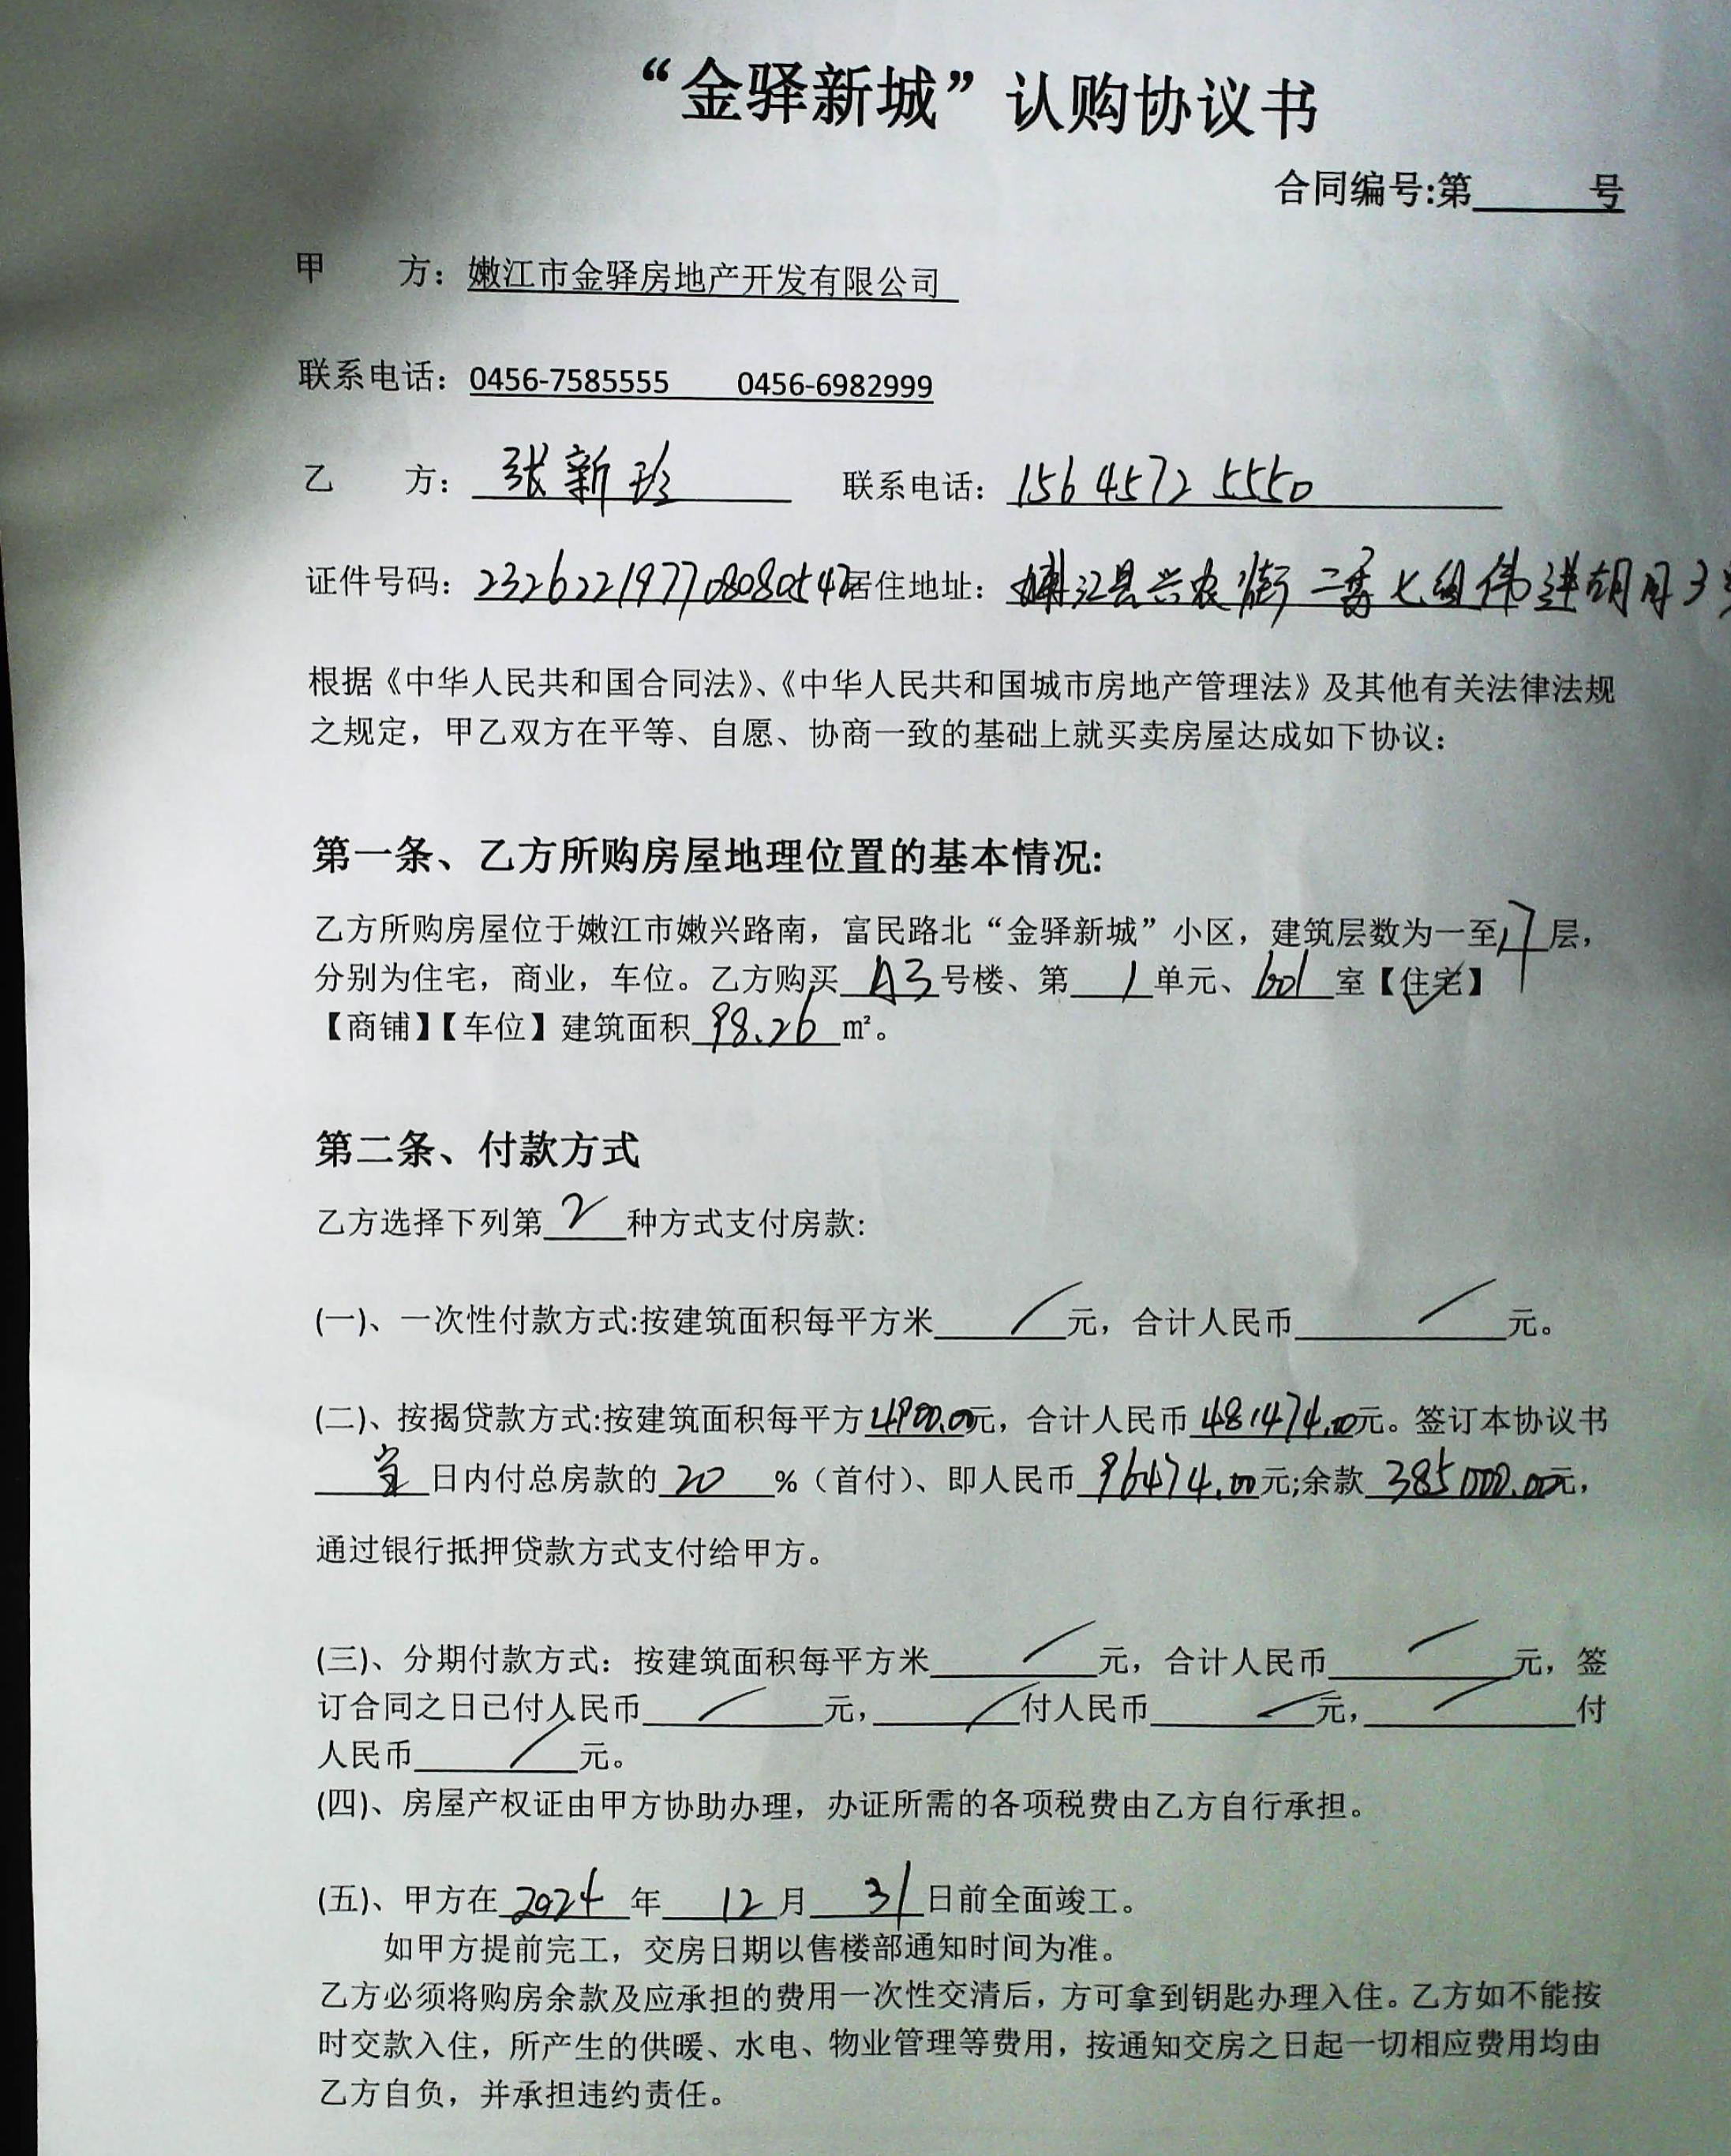 “金驿新城”认购协议书
合同编号:第 号
甲 方：嫩江市金驿房地产开发有限公司
联系电话：0456-7585555 0456-6982999
乙 方：张新 联系电话：156 4572 5550
证件号码：232622197708080542 居住地址：嫩江县兴农街二委七组伟进胡同3
根据《中华人民共和国合同法》、《中华人民共和国城市房地产管理法》及其他有关法律法规
之规定，甲乙双方在平等、自愿、协商一致的基础上就买卖房屋达成如下协议：
第一条、乙方所购房屋地理位置的基本情况:
乙方所购房屋位于嫩江市嫩兴路南，富民路北“金驿新城”小区，建筑层数为一至17层，
分别为住宅，商业，车位。乙方购买 A3 号楼、第 1 单元、601 室【住宅】
【商铺】【车位】建筑面积 98.26 m²。
第二条、付款方式
乙方选择下列第 2 种方式支付房款:
(一)、一次性付款方式:按建筑面积每平方米 / 元，合计人民币 / 元。
(二)、按揭贷款方式:按建筑面积每平方4900.00元，合计人民币 481474.00元。签订本协议书
日内付总房款的 20 %（首付）、即人民币 96474.00元;余款 385000.00元，
通过银行抵押贷款方式支付给甲方。
(三)、分期付款方式：按建筑面积每平方米 / 元，合计人民币 / 元，签
订合同之日已付人民币 / 元， / 付人民币 / 元， / 付
人民币 / 元。
(四)、房屋产权证由甲方协助办理，办证所需的各项税费由乙方自行承担。
(五)、甲方在 2024 年 12 月 31 日前全面竣工。
如甲方提前完工，交房日期以售楼部通知时间为准。
乙方必须将购房余款及应承担的费用一次性交清后，方可拿到钥匙办理入住。乙方如不能按
时交款入住，所产生的供暖、水电、物业管理等费用，按通知交房之日起一切相应费用均由
乙方自负，并承担违约责任。